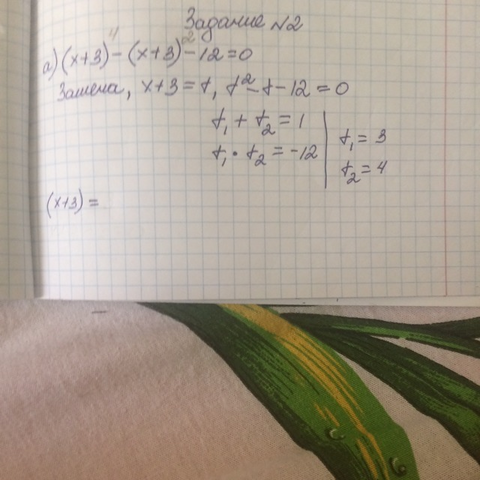 Задание №2
а) (x+3)⁴ - (x+3)² - 12 = 0
Замена, x+3 = t, t² - t - 12 = 0
t₁ + t₂ = 1
t₁ · t₂ = -12
t₁ = 3
t₂ = 4
(x+3) =